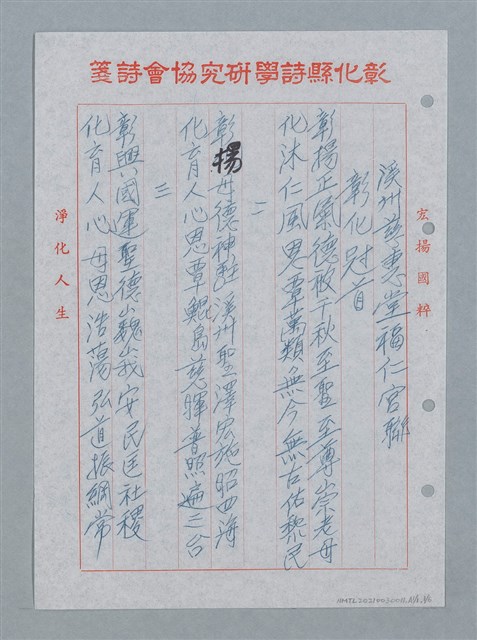 彰化縣詩學研究協會詩箋
宏揚國粹
溪州慈惠堂福仁宮聯
彰化冠首
彰揚正氣德被千秋至聖至尊崇老母
化沐仁風恩覃萬類無今無古佑黎民
二
彰揚母德神駐溪州聖澤宏施昭四海
化育人心恩覃鯤島慈暉普照遍三台
三
彰興國運聖德巍峩安民匡社稷
化育人心母恩浩蕩弘道振綱常
淨化人生